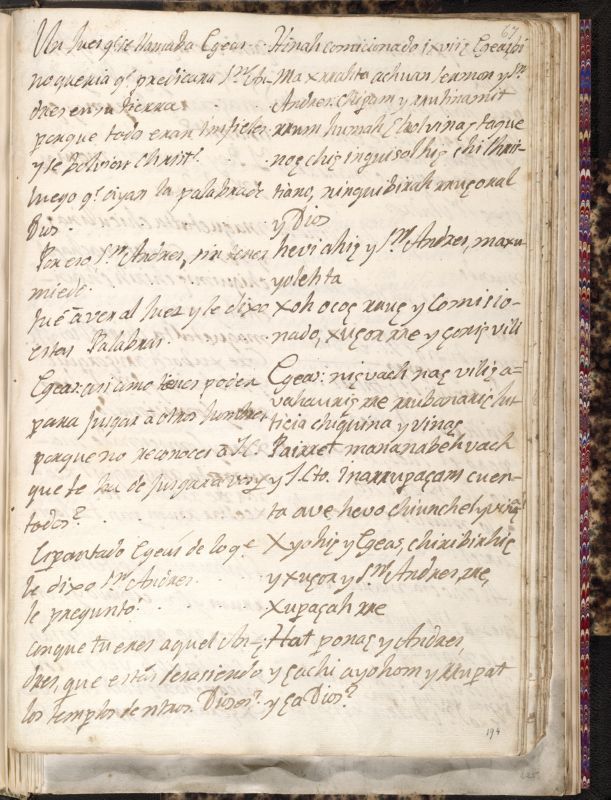 67
Un Juez q̃ se llamaba Egeas
no queria q̃ predicara Sⁿ An-
dres en su tierra
porque todos eran infieles
y se bolvian Christ.ˢ
luego q̃ oiyan la palabra de
Dios.
Por eso Sⁿ Andres, sin tener
miedo.
fue â ver al Juez y le dixo
estas Palabras.
Egeas: asi como tienes poder
para jusgar â otros hombres
porque no reconoces a
que te ha de jusgar a vos y
todos?
Espantado Egeas de lo q̃
le dixo Sⁿ Andres
le pregunto.
conque tu eres aquel An-
dres, que estas desasiendo
los templos de ntros. Dioses?
Hinah comicionado ixviiç Egeas
Ma xrralita achuan sermon y Sⁿ
Andres. chipam y rrutinamit
rrum humah Eholvinaç taque
noç chiç inguisolhiç chi Chris-
tiano, ninquibirah rruçonal
y Dios
hevi ahiç y Sⁿ Andres, maxu-
yolehta
xoh ocoç rruç y Comisio-
nado, xuçor rre y çoniç vili
Egeas: niçvach naç viliç a-
vahauriç rre rrubanariç Ju-
ticia chiquina y vinaç
Pairret mananabeh vach
y J.Cto. Inarrupaçam cuen-
ta ave hevo chiunchel y
Xyohiç y Egeas, chiribirhiç
y xuçor y Sⁿ Andres rre,
xupaçah rre
Hat ponaç y Andres,
y çachi ayohom y rrupat
y ça Dios?
194